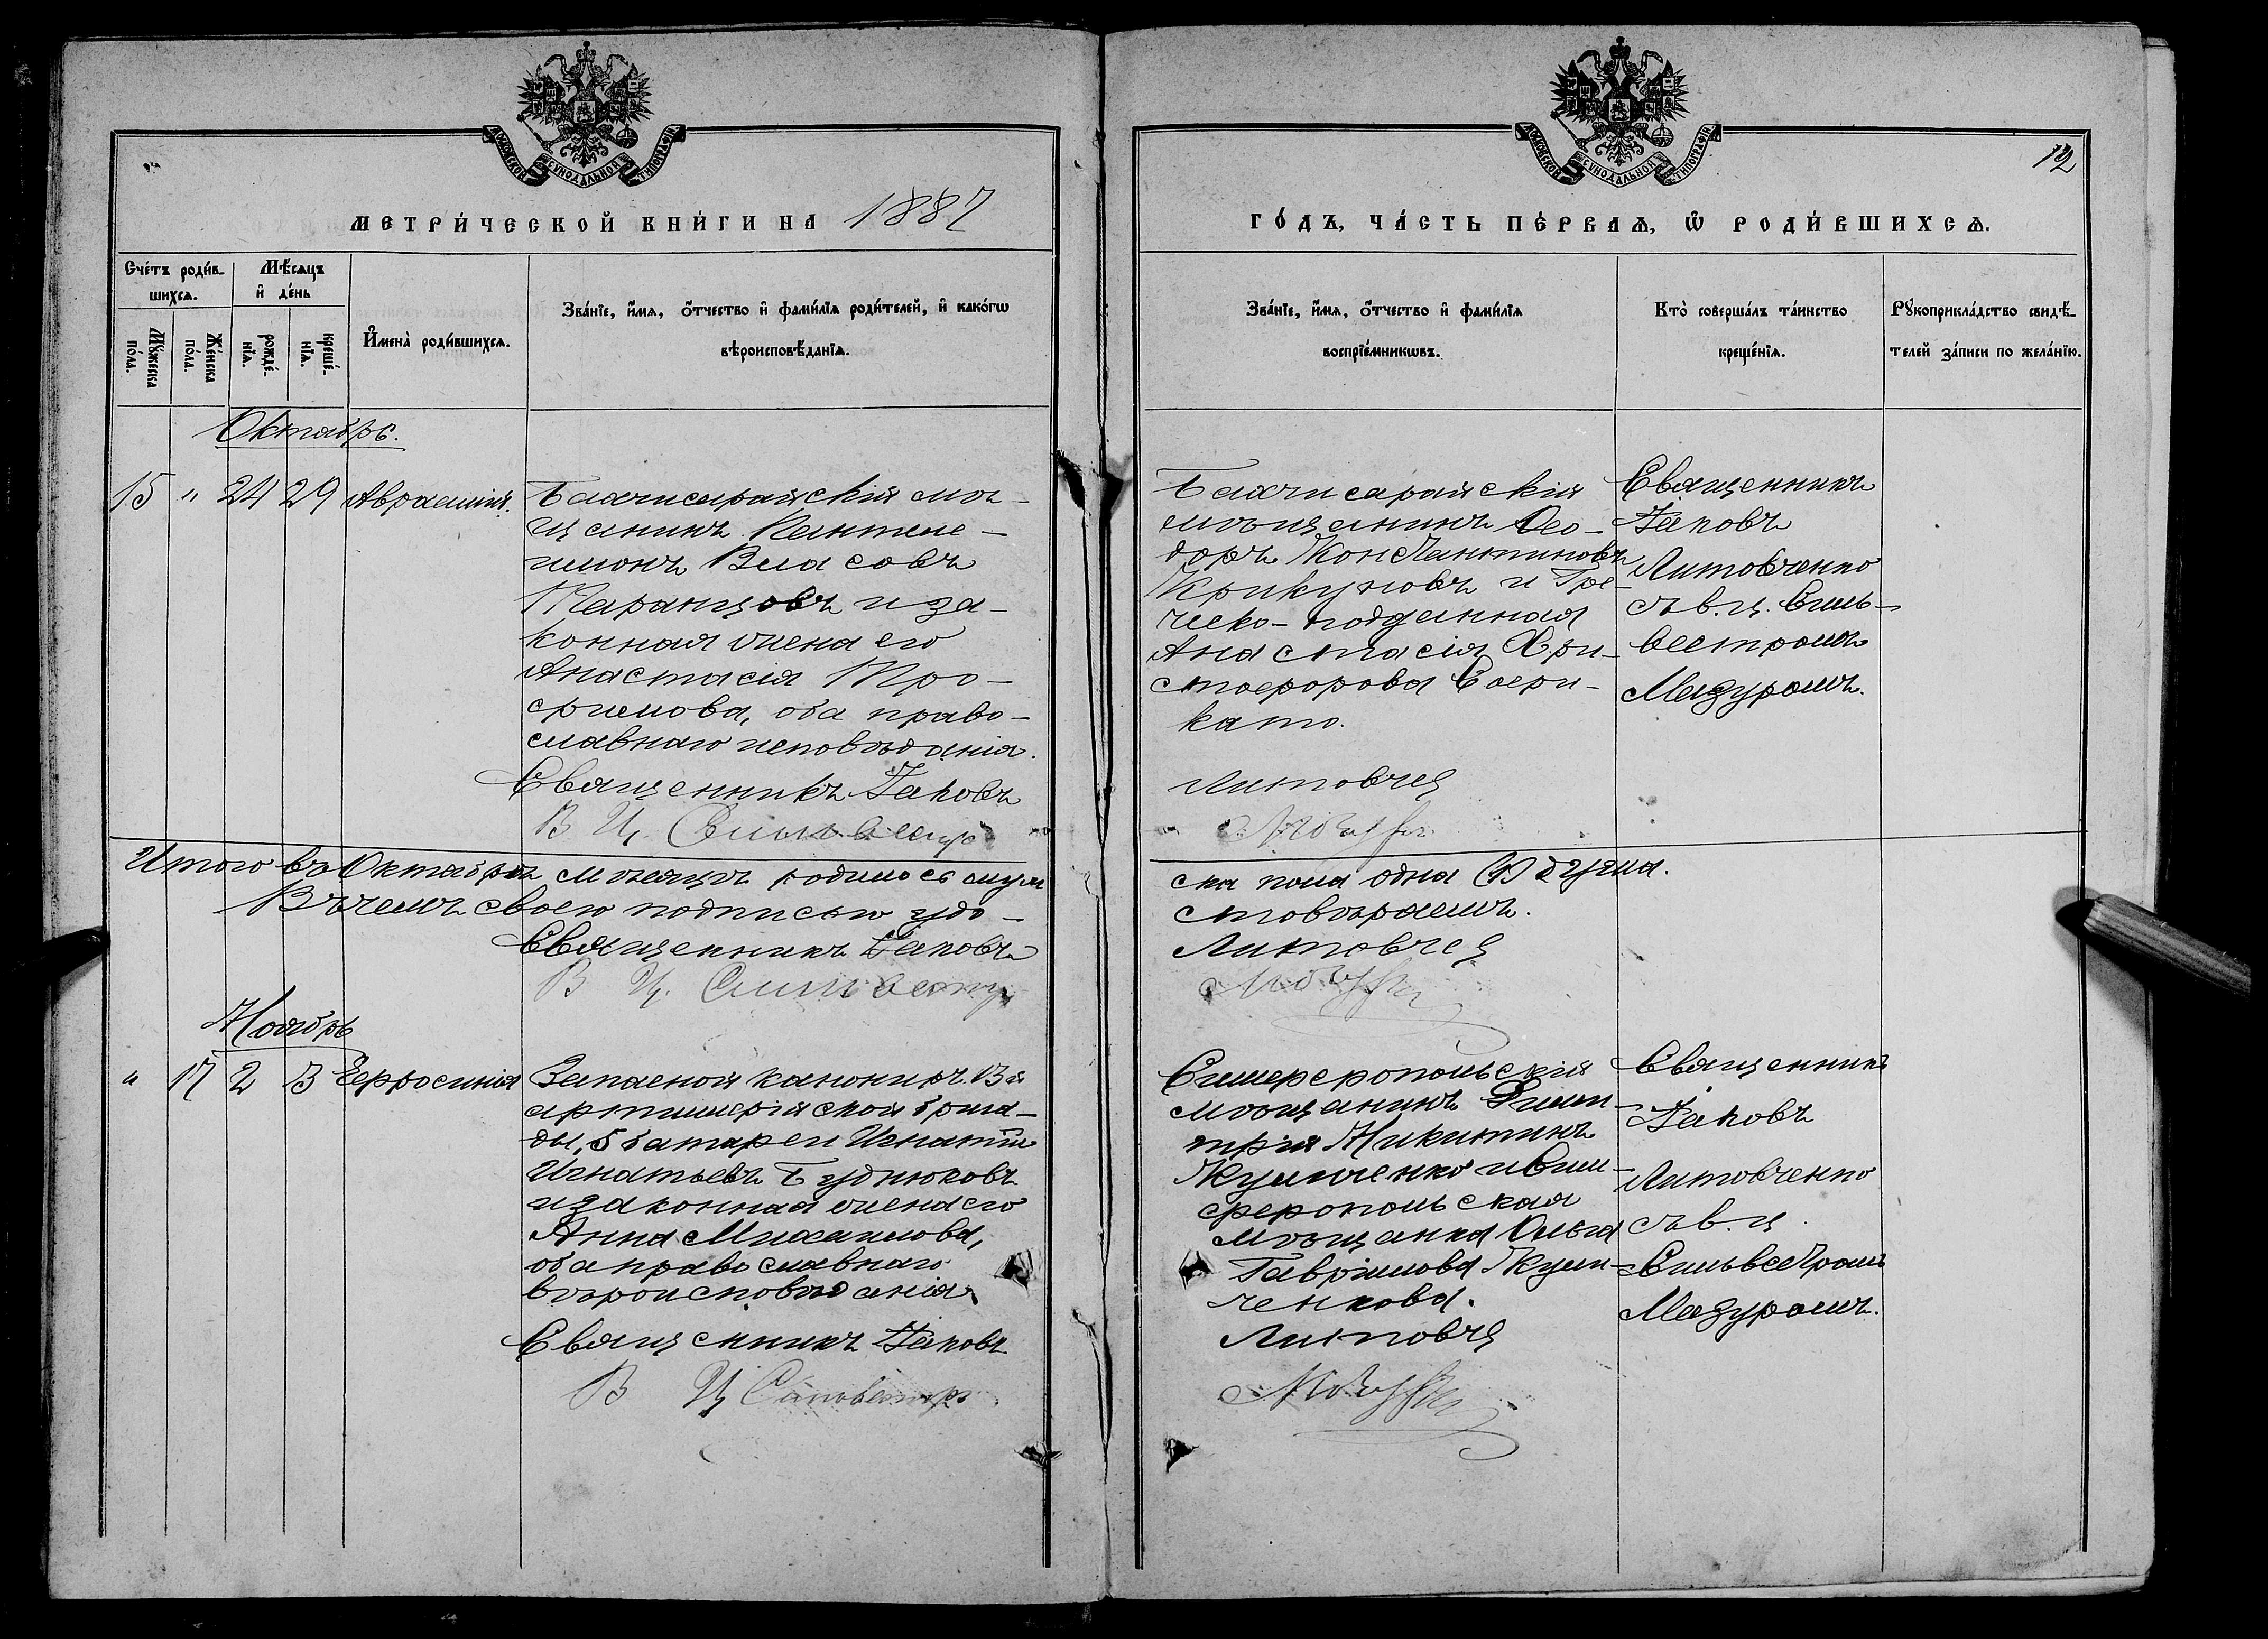 МОСКОВСКОЙ СѴНОДАЛЬНОЙ ТИПОГРАФІИ
МОСКОВСКОЙ СѴНОДАЛЬНОЙ ТИПОГРАФІИ
12
МЕТРИ́ЧЕСКОЙ КНИ́ГИ НА 1887
ГО́ДЪ, ЧА́СТЬ ПЕ́РВАѦ, Ѽ РОДИ́ВШИХСѦ.
Сче́тъ роди́в-
шихсѧ.
Мѣ́сѧцъ
и҆ де́нь
Мꙋ́жеска
по́ла.
Же́нска
по́ла.
рожде́-
нїѧ.
креще́-
нїѧ.
И҆мена̀ роди́вшихсѧ.
Зва́нїе, и҆́мѧ, ѻ҆́тчество и҆ фами́лїѧ роди́телей, и҆ како́гѡ
вѣроисповѣ́данїѧ.
Зва́нїе, и҆́мѧ, ѻ҆́тчество и҆ фами́лїѧ
воспрїе́мникѡвъ.
Кто̀ соверша́лъ та́инство
креще́нїѧ.
Рꙋкоприкла́дство свидѣ́-
телей за́писи по жела́нїю.
Октябрь.
15 " 24 29 Авраамій.
Бахчисарайскій мѣ-
щанинъ Пантеле-
имонъ Власовъ
Таранцовъ и за-
конная жена его
Анастасія Тро-
фимова, оба право-
славнаго исповѣданія.
Священникъ Іаковъ
В. Ц. Сильвестръ
Бахчисарайскій
мѣщанинъ Ѳео-
доръ Константиновъ
Крикуновъ и Гре-
ческо-подданная
Анастасія Хри-
стофорова
като.
Литовче
Священникъ
Іаковъ
Литовченко
съ в. ц. Силь-
вестромъ
Мазуромъ.
Итого въ Октябрѣ мѣсяцѣ родилось муже
ска пола одна (1) душа.
Въ чемъ своею подписью удо-
стовѣряемъ.
Священникъ Іаковъ
Литовче
В Ц. Сильвестръ
Ноябрь
" 17 2 3 Евфросинія
Запасной канониръ 13й
артиллерійской брига-
ды, 5 батареи Игнатій
Игнатьевъ Буднюковъ
и законная жена его
Анна Михаилова,
оба православнаго
вѣроисповѣданія.
Священникъ Іаковъ
В Ц Сильвестръ
Симферопольскій
мѣщанинъ Дими-
трій Никитинъ
Кульченко и Сим-
феропольская
мѣщанка Ольга
Гавріилова Куль-
ченкова.
Литовче
Священникъ
Іаковъ
Литовченко
съ в. ц.
Сильвестромъ
Мазуромъ.